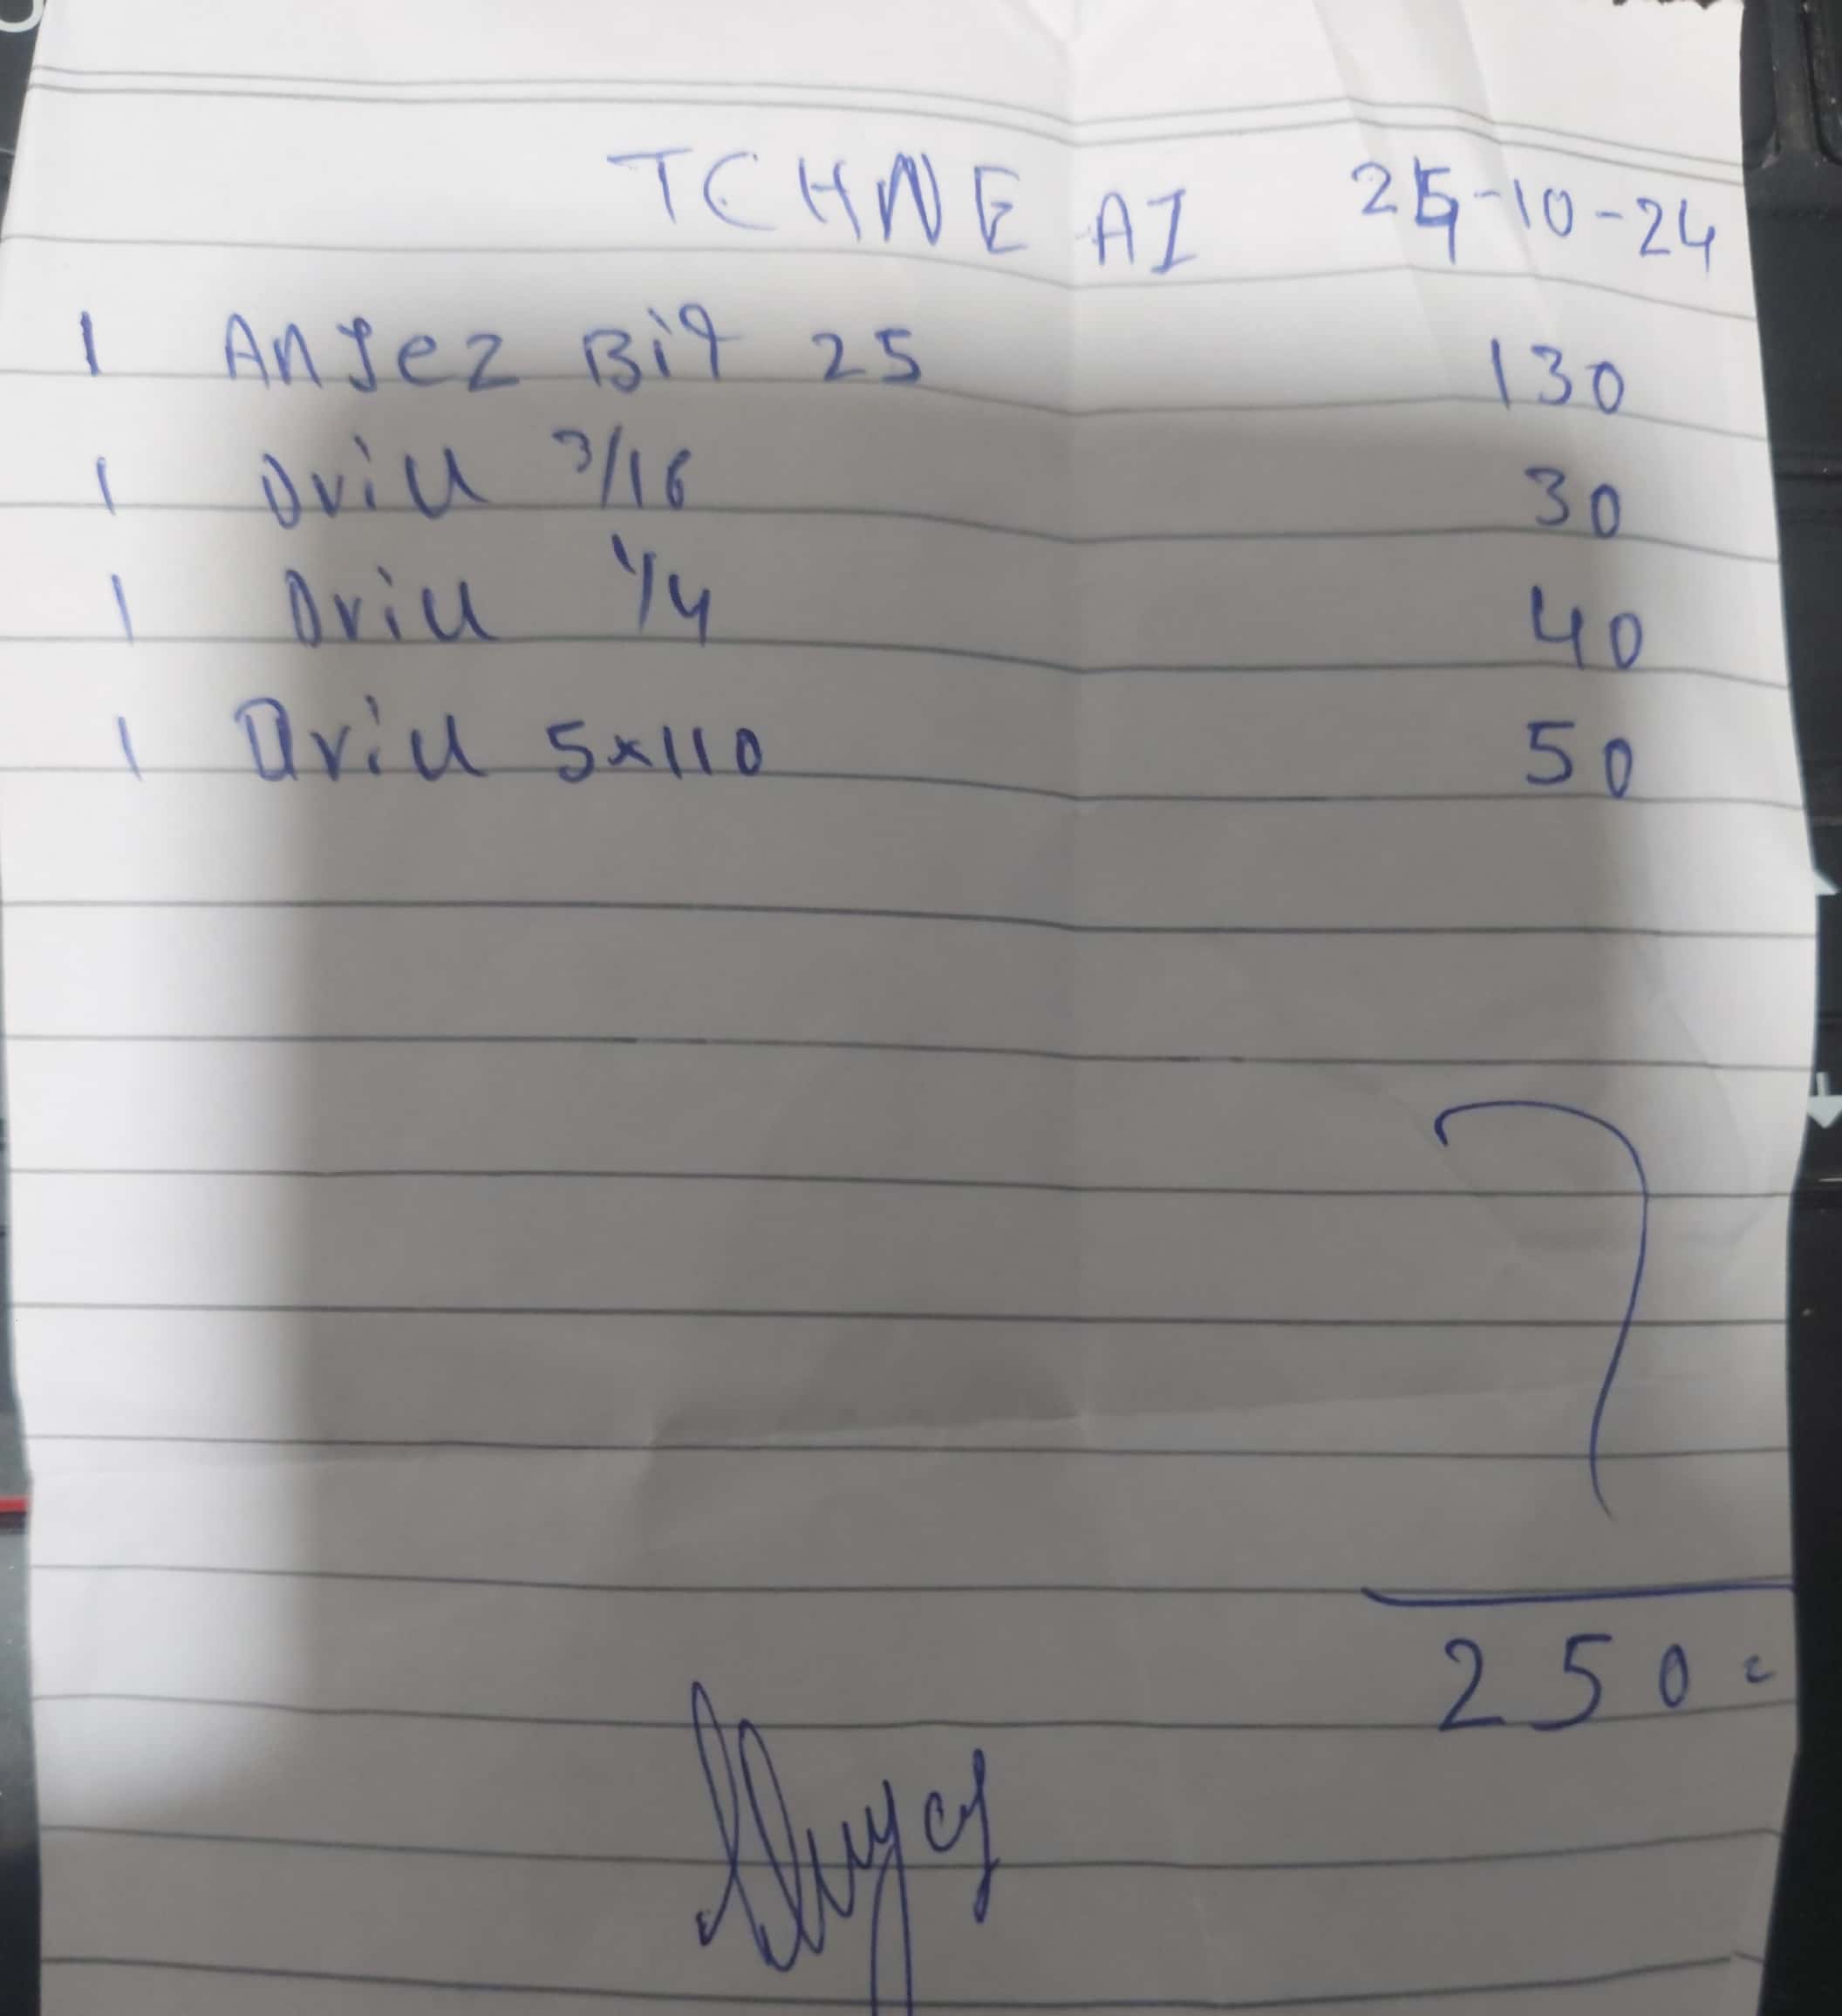 TCHNE AI 25-10-24
1 Anjez Bit 25 130
1 Drill 3/16 30
1 Drill 1/4 40
1 Drill 5x110 50
250=